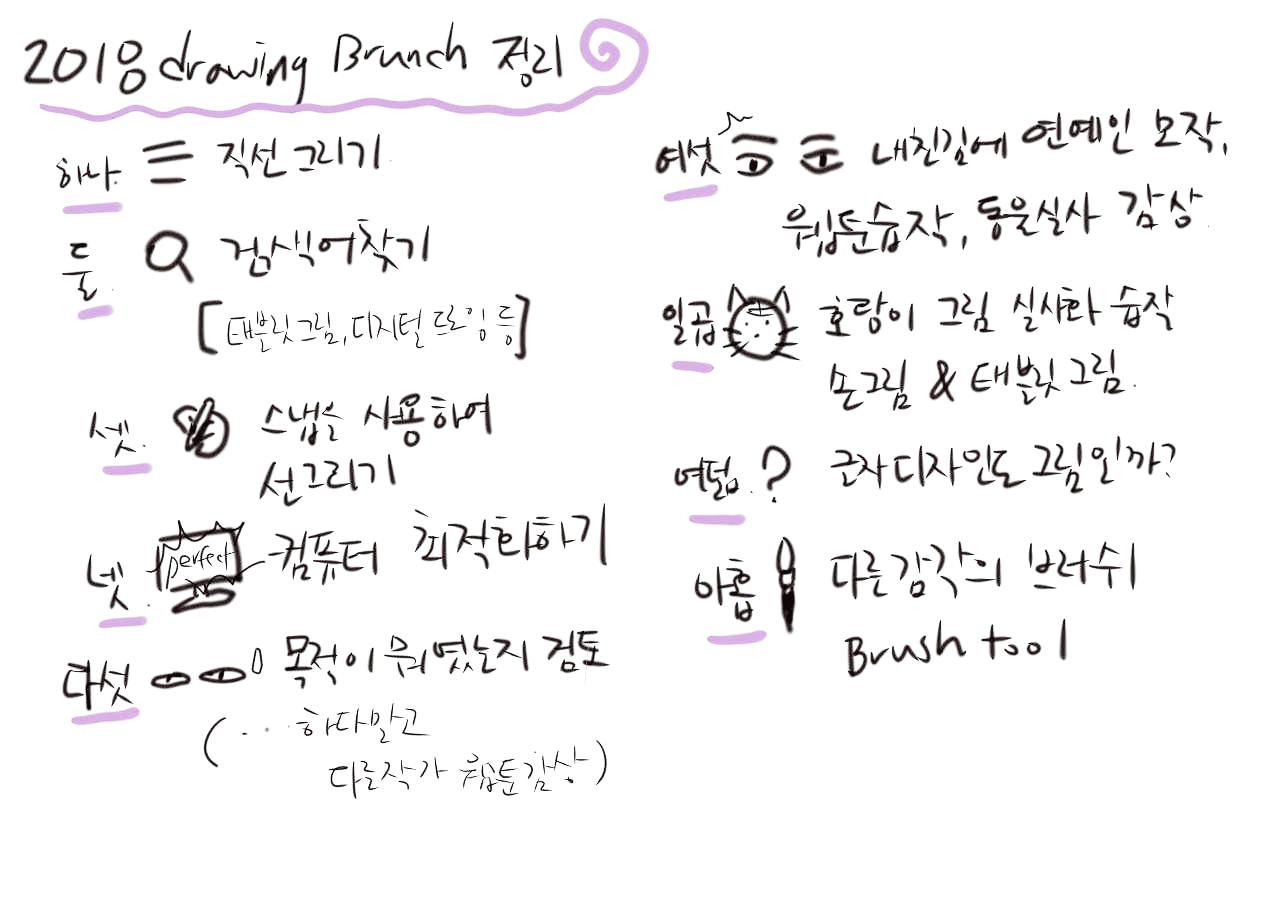 2018 drawing Brunch 정리
하나. 직선 그리기
둘. 검색어찾기
[태블릿그림, 디지털 드로잉 등]
셋. 스냅을 사용하여
선그리기
넷. perfect 컴퓨터 최적화하기
다섯 목적이 뭐였는지 검토
(... 하다말고
다른작가 웹툰감상)
여섯 내친김에 연예인 모작,
웹툰습작, 동물실사 감상
일곱 호랑이 그림 실사화 습작
손그림 & 태블릿그림.
여덟. ? 글자디자인도 그림일까?
아홉 다른감각의 브러쉬
Brush tool